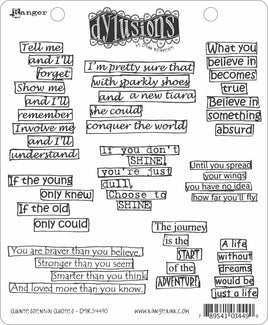 Ranger
DYLUSIONS
by Dyan Reaveley
Tell me
and I'll
forget
Show me
and I'll
remember
Involve me
and I'll
understand
I'm pretty sure that
with sparkly shoes
and a new tiara
she could
conquer the world
What you
believe in
becomes
true
Believe in
something
absurd
If the young
only knew
If the old
only could
If you
don't
SHINE,
you're just
dull,
Choose to
SHINE
Until you spread
your wings
you have no idea
how far you'll fly
You are braver than you believe
Stronger than you seem
Smarter than you think
And loved more than you know.
The journey
is the
START
of the
ADVENTURE!
A life
without
dreams
would be
just a life
QUINTESSENTIAL QUOTES - DYR34490
WWW.RANGERINK.COM
7 89541 03449 0